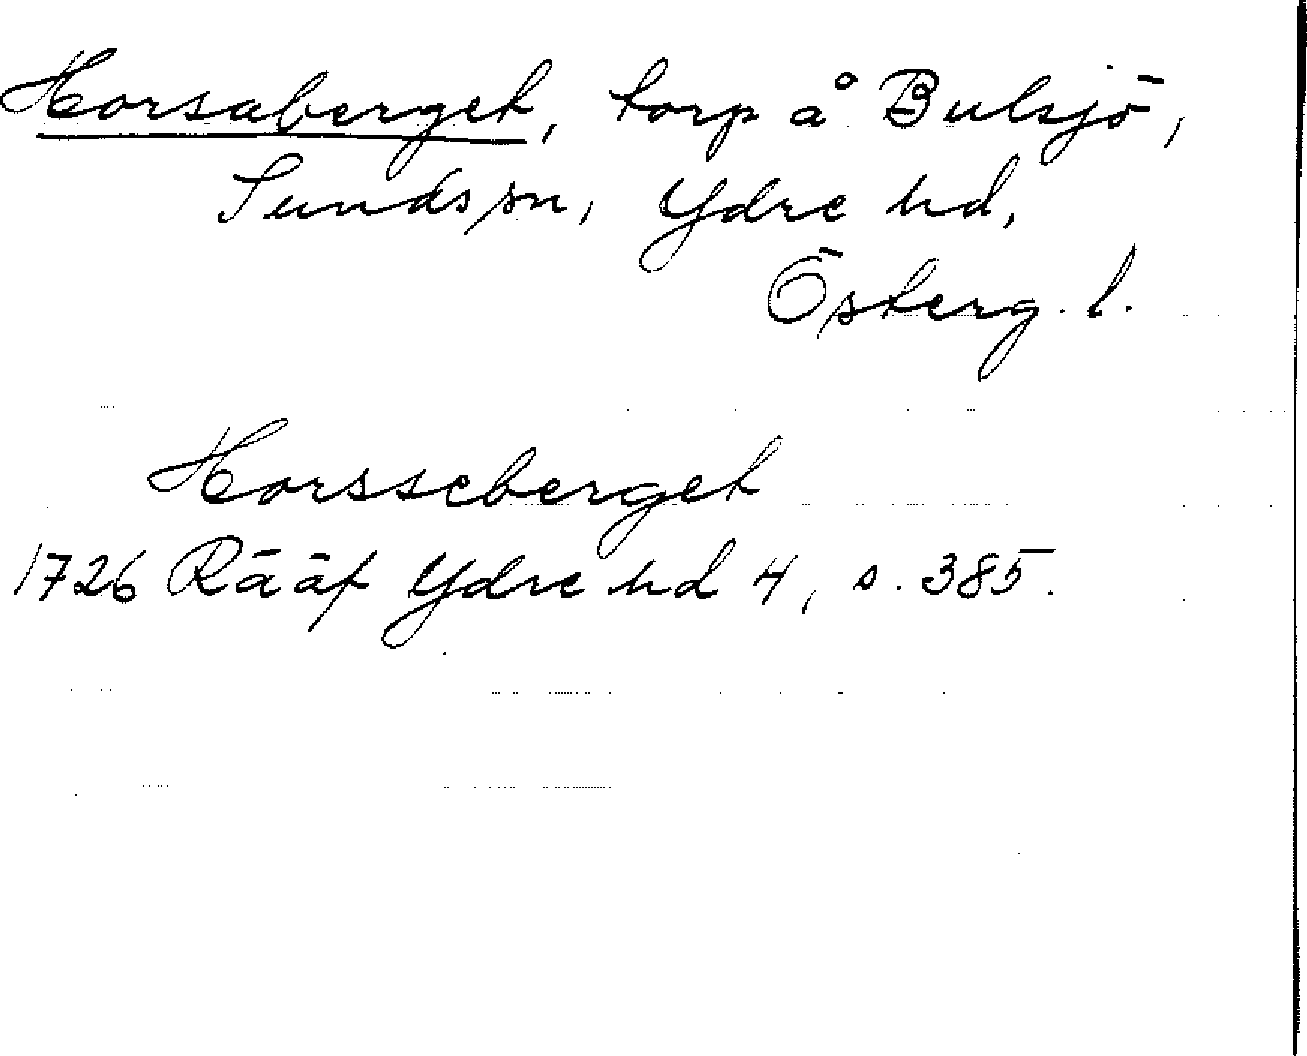 Horsaberget, torp å Bulsjö,
Sunds sn, Ydre hd,
Österg. l.
Horsseberget
1726 Rääf Ydre hd 4, s. 385.